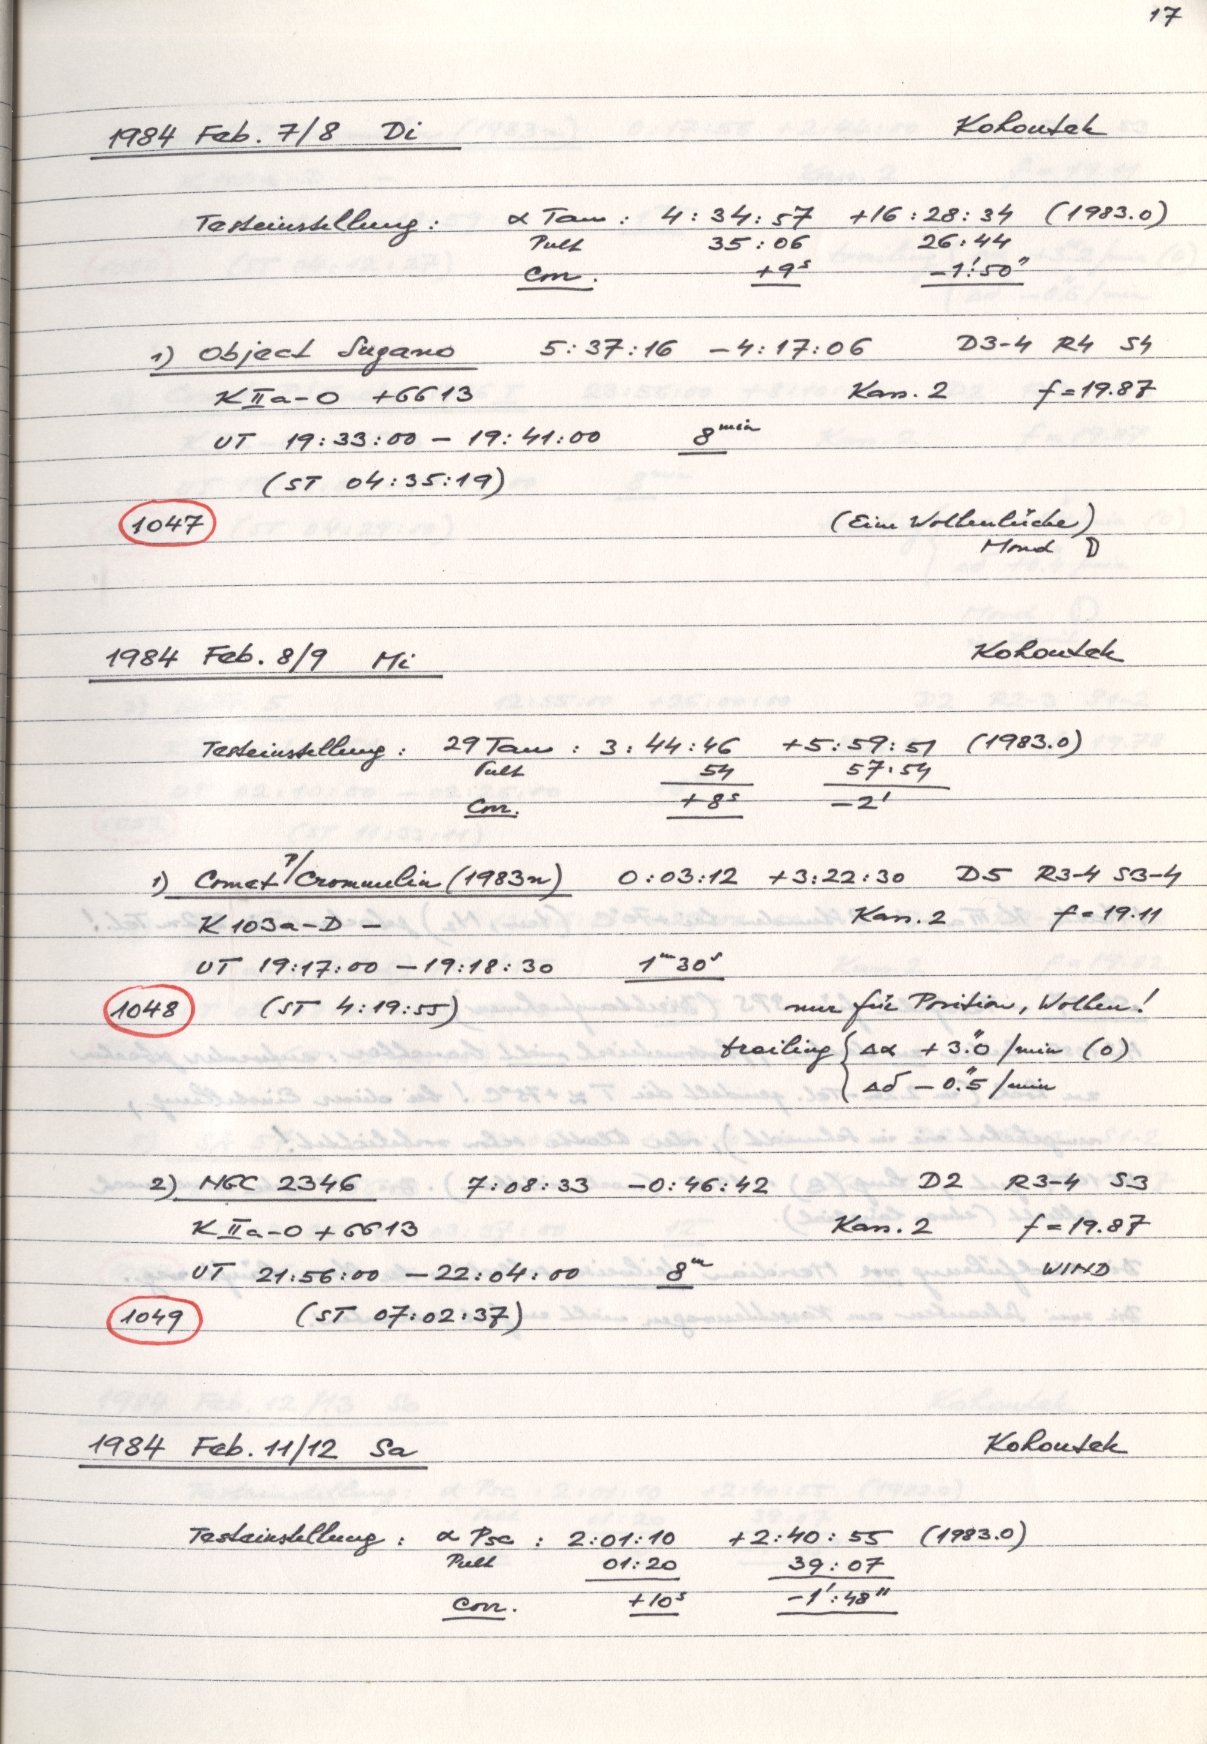 17
1984 Feb. 7/8 Di Kohoutek
Testeinstellung: α Tau : 4:34:57 +16:28:34 (1983.0)
Pult 35:06 26:44
Corr. +9ˢ -1'50"
1) Object Sugano 5:37:16 -4:17:06 D3-4 R4 S4
K IIa-O +GG13 Kass. 2 f=19.87
UT 19:33:00 - 19:41:00 8ᵐⁱⁿ
(ST 04:35:19)
1047 (Eine Wolkenlücke)
Mond D
1984 Feb. 8/9 Mi Kohoutek
Testeinstellung: 29 Tau : 3:44:46 +5:59:51 (1983.0)
Pult 54 57:54
Corr. +8ˢ -2'
1) Comet P/Crommelin (1983n) 0:03:12 +3:22:30 D5 R3-4 S3-4
K 103a-D - Kass. 2 f=19.11
UT 19:17:00 - 19:18:30 1ᵐ30ˢ
1048 (ST 4:19:55) nur für Position, Wolken!
trailing { Δα +3."0 /min (0)
Δδ -0."5 /min
2) NGC 2346 7:08:33 -0:46:42 D2 R3-4 S3
K IIa-O + GG13 Kass. 2 f=19.87
UT 21:56:00 - 22:04:00 8ᵐ WIND
1049 (ST 07:02:37)
1984 Feb. 11/12 Sa Kohoutek
Testeinstellung: α Psc : 2:01:10 +2:40:55 (1983.0)
Pult 01:20 39:07
Corr. +10ˢ -1':48"